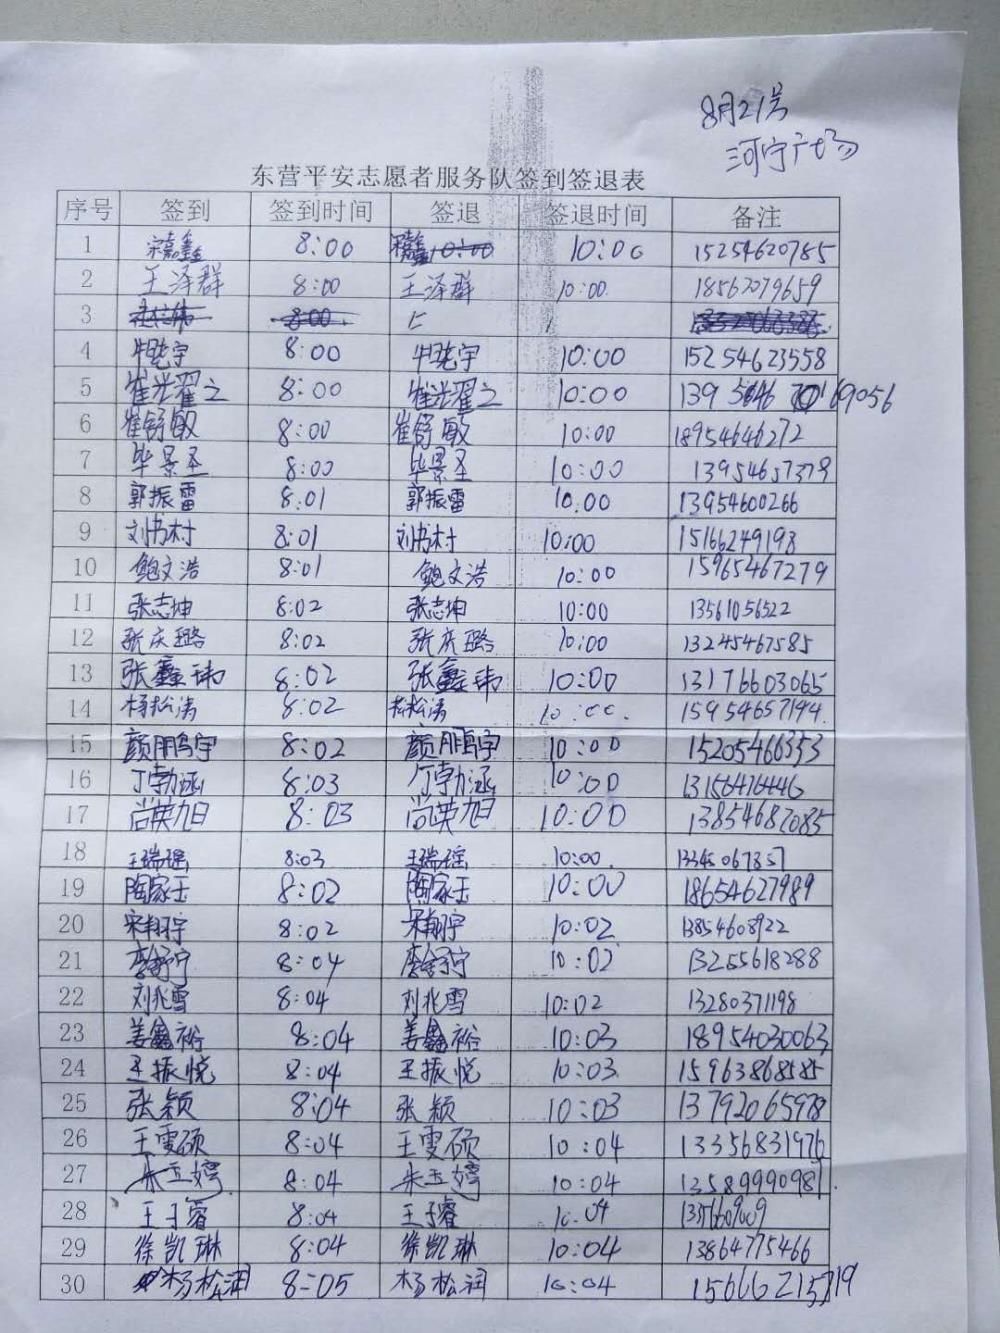 8月21号
河宁广场
东营平安志愿者服务队签到签退表
序号 签到 签到时间 签退 签退时间 备注
1 宋嘉鑫 8:00 宋嘉鑫 10:00 10:00 15254620785
2 王泽群 8:00 王泽群 10:00 18562079659
3 8:00
4 牛晓宇 8:00 牛晓宇 10:00 15254623558
5 崔光耀之 8:00 崔光耀之 10:00 139 5646 69056
6 崔舒敏 8:00 崔舒敏 10:00 18954646272
7 毕景圣 8:00 毕景圣 10:00 13954657379
8 郭振雷 8:01 郭振雷 10:00 13954600266
9 刘书村 8:01 刘书村 10:00 15166249198
10 鲍文浩 8:01 鲍文浩 10:00 15965467279
11 张志坤 8:02 张志坤 10:00 13561056522
12 张庆璐 8:02 张庆璐 10:00 13245467585
13 张鑫玮 8:02 张鑫玮 10:00 13176603065
14 杨松涛 8:02 松松涛 10:00. 15954657194
15 颜鹏宇 8:02 颜鹏宇 10:00 15205466353
16 丁勃涵 8:03 丁勃涵 10:00 13156476446
17 尚英旭 8:03 尚英旭 10:00 13854682085
18 王瑞瑶 8:03 王瑞瑶 10:00. 13345067357
19 陶家玉 8:02 陶家玉 10:00 18654627989
20 宋翔宇 8:02 宋翔宇 10:02 13854608922
21 李舒宁 8:04 李舒宁 10:02 13255618288
22 刘兆雪 8:04 刘兆雪 10:02 13280371198
23 姜鑫裕 8:04 姜鑫裕 10:03 18954030063
24 王振悦 8:04 王振悦 10:03 15963868585
25 张颖 8:04 张颖 10:03 13792065978
26 王雯硕 8:04 王雯硕 10:04 13356831976
27 朱玉婷 8:04 朱玉婷 10:04 13589990981
28 王子睿 8:04 王子睿 10:04
29 徐凯琳 8:04 徐凯琳 10:04 13864775466
30 杨松润 8:05 杨松润 10:04